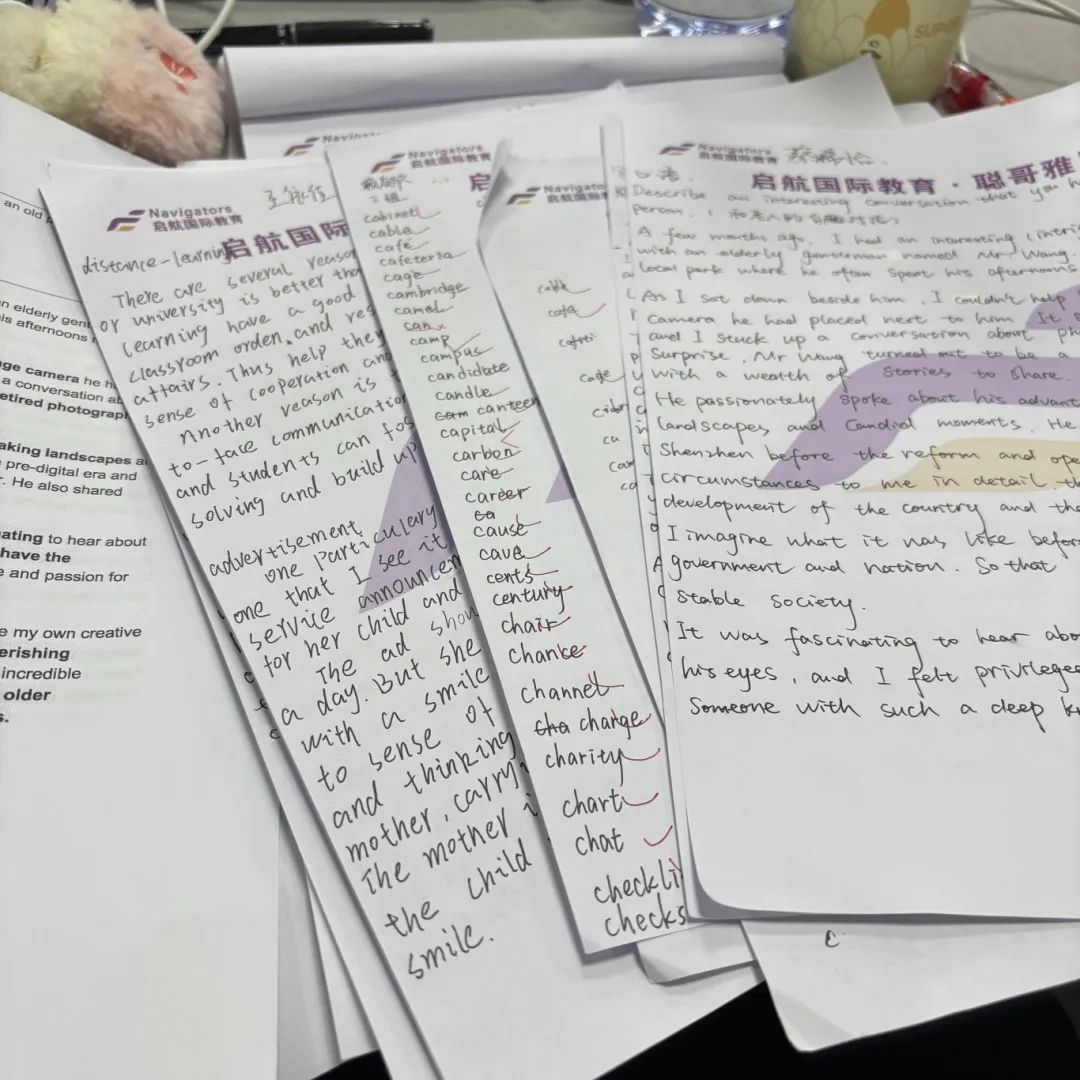 an old
n elderly gent
is afternoons
ge camera he h
a conversation ab
etired photograp
aking landscapes a
pre-digital era and
r. He also shared
ating to hear about
have the
e and passion for
e my own creative
erishing
incredible
older
s.
Navigators
启航国际教育
启航国际
distance-learning
There are several reaso
or university is better tha
learning have a good
classroom orden. and res
affairs. Thus help they
sense of cooperation and
Another reason is
to-face communicatio
and students can fos
solving and build up
advertisement
one particulary
one that I see it
service announcem
for her child and
The ad show
a day. But she
with a smile
to sense of
and thinking
mother, carry
The mother i
the child
smile.
Navigators
启航国际教育
启
二组
cabinet
cable
café
cafeteria
cage
cambridge
camel
can
camp
campus
candidate
candle
canteen
capital
carbon
care
career
ca
cause
cave
cents
century
chair
chance
channel
cha change
charity
chart
chat
checkli
checks
Navigators
启航国际教育
cable
café
cage
ca
cam
Navigators
启航国际教育
启航国际教育·聪哥雅
口语.
Describe an interesting conversation that you h
person. (和老人的有趣对话)
A few months ago, I had an interesting (intrig
with an elderly gentleman named Mr Wang.
local park where he often spent his afternoons
As I sat down beside him, I couldn't help
camera he had placed next to him. It s
and I stuck up a conversation about ph
Surprise, Mr Wang turned out to be a
with a weatth of stories to share.
He passionately spoke about his advant
landscapes and candid moments. He
Shenzhen before the reform and ope
circumstances to me in detail th
development of the country and the
I imagine what it was like befor
government and nation. So that
stable society.
It was fascinating to hear abo
his eyes, and I felt privilege
Someone with such a deep k